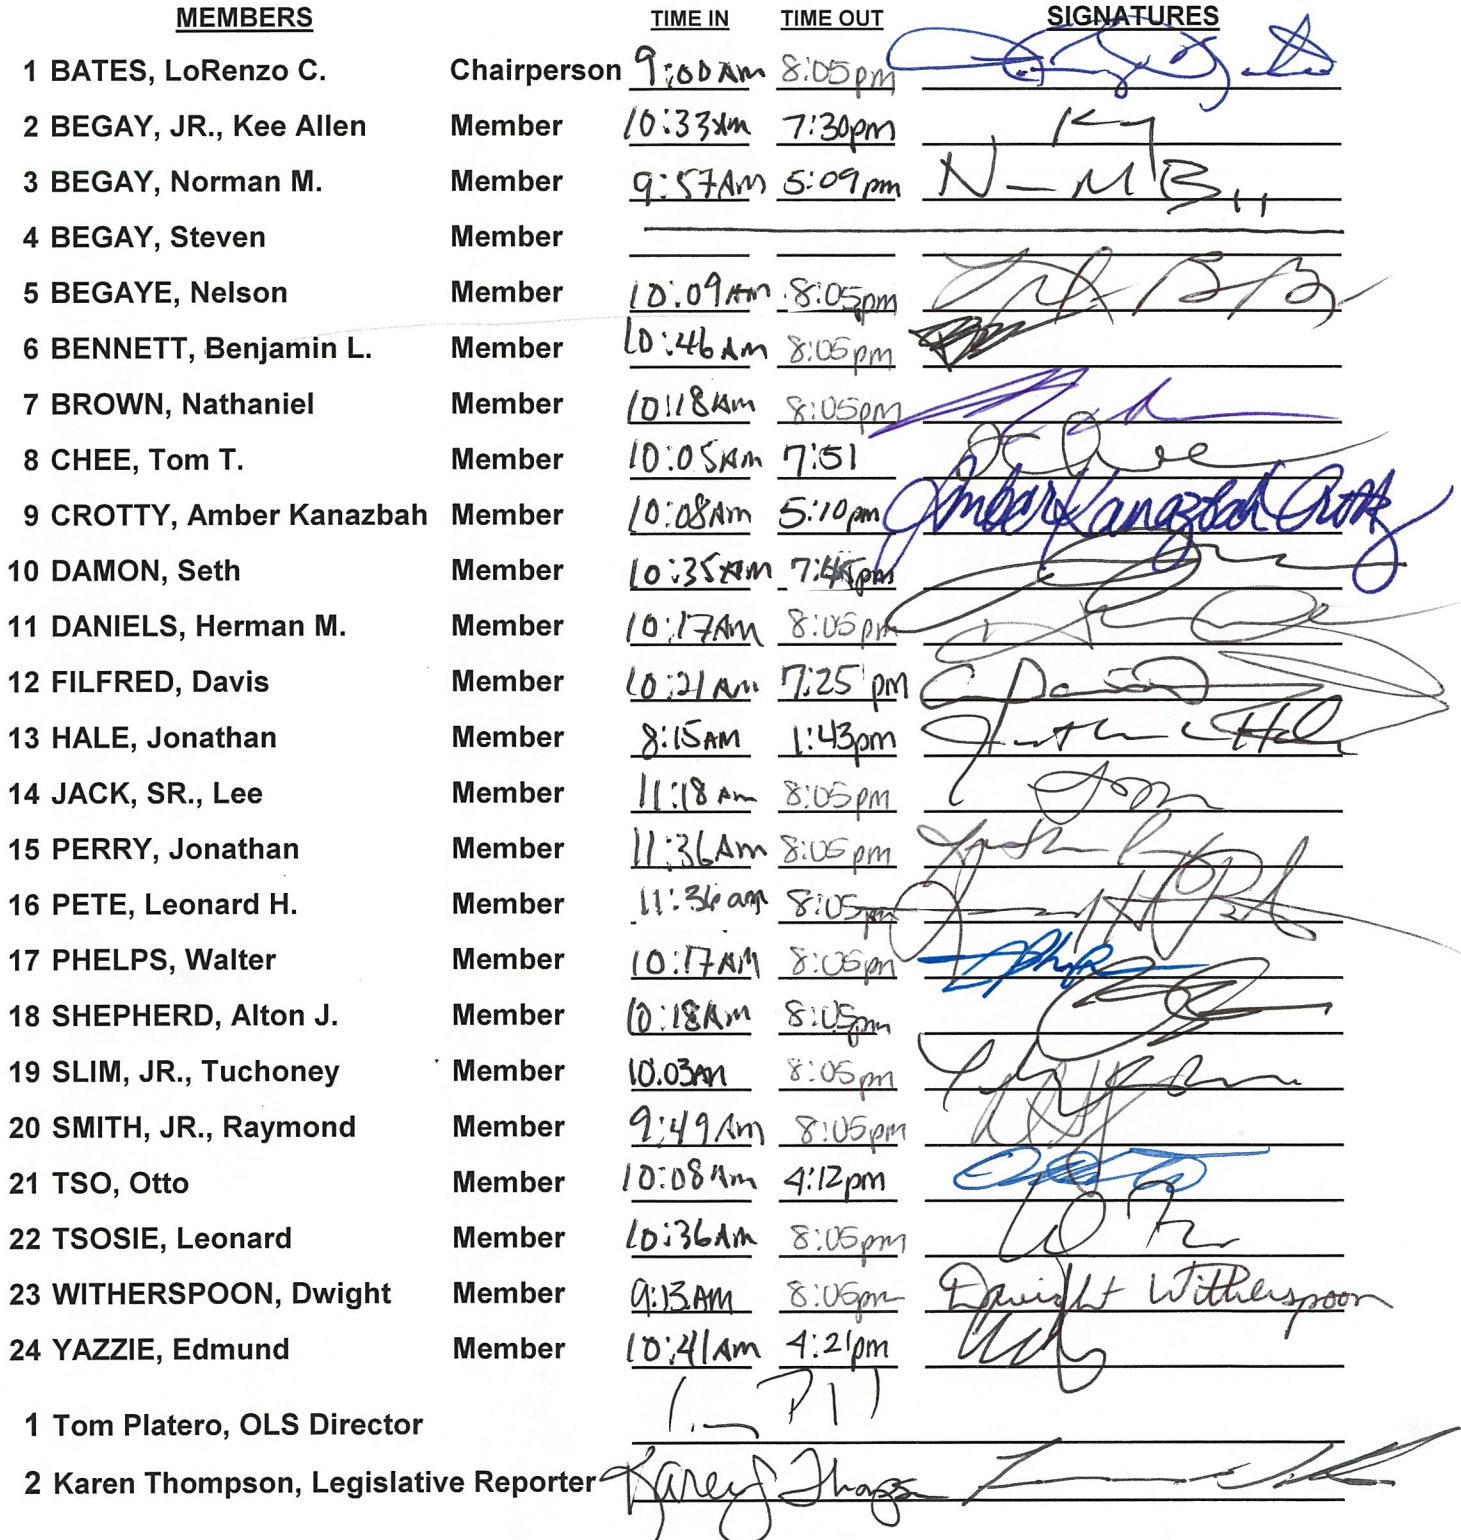 MEMBERS TIME IN TIME OUT SIGNATURES
1 BATES, LoRenzo C. Chairperson 9:00AM 8:05pm
2 BEGAY, JR., Kee Allen Member 10:33AM 7:30pm
3 BEGAY, Norman M. Member 9:57AM 5:09pm N-MB
4 BEGAY, Steven Member
5 BEGAYE, Nelson Member 10:09AM 8:05pm
6 BENNETT, Benjamin L. Member 10:46AM 8:05pm
7 BROWN, Nathaniel Member 10:18AM 8:05pm
8 CHEE, Tom T. Member 10:05AM 7:51
9 CROTTY, Amber Kanazbah Member 10:08AM 5:10pm Amber Kanazbah Crotty
10 DAMON, Seth Member 10:35AM 7:45pm
11 DANIELS, Herman M. Member 10:17AM 8:05pm
12 FILFRED, Davis Member 10:21AM 7:25pm
13 HALE, Jonathan Member 8:15AM 1:43pm
14 JACK, SR., Lee Member 11:18AM 8:05pm
15 PERRY, Jonathan Member 11:36AM 8:05pm
16 PETE, Leonard H. Member 11:36am 8:05pm
17 PHELPS, Walter Member 10:17AM 8:05pm
18 SHEPHERD, Alton J. Member 10:18AM 8:05pm
19 SLIM, JR., Tuchoney Member 10:03AM 8:05pm
20 SMITH, JR., Raymond Member 9:49AM 8:05pm
21 TSO, Otto Member 10:08AM 4:12pm
22 TSOSIE, Leonard Member 10:36AM 8:05pm
23 WITHERSPOON, Dwight Member 9:13AM 8:05pm Dwight Witherspoon
24 YAZZIE, Edmund Member 10:41AM 4:21pm
1 Tom Platero, OLS Director
2 Karen Thompson, Legislative Reporter